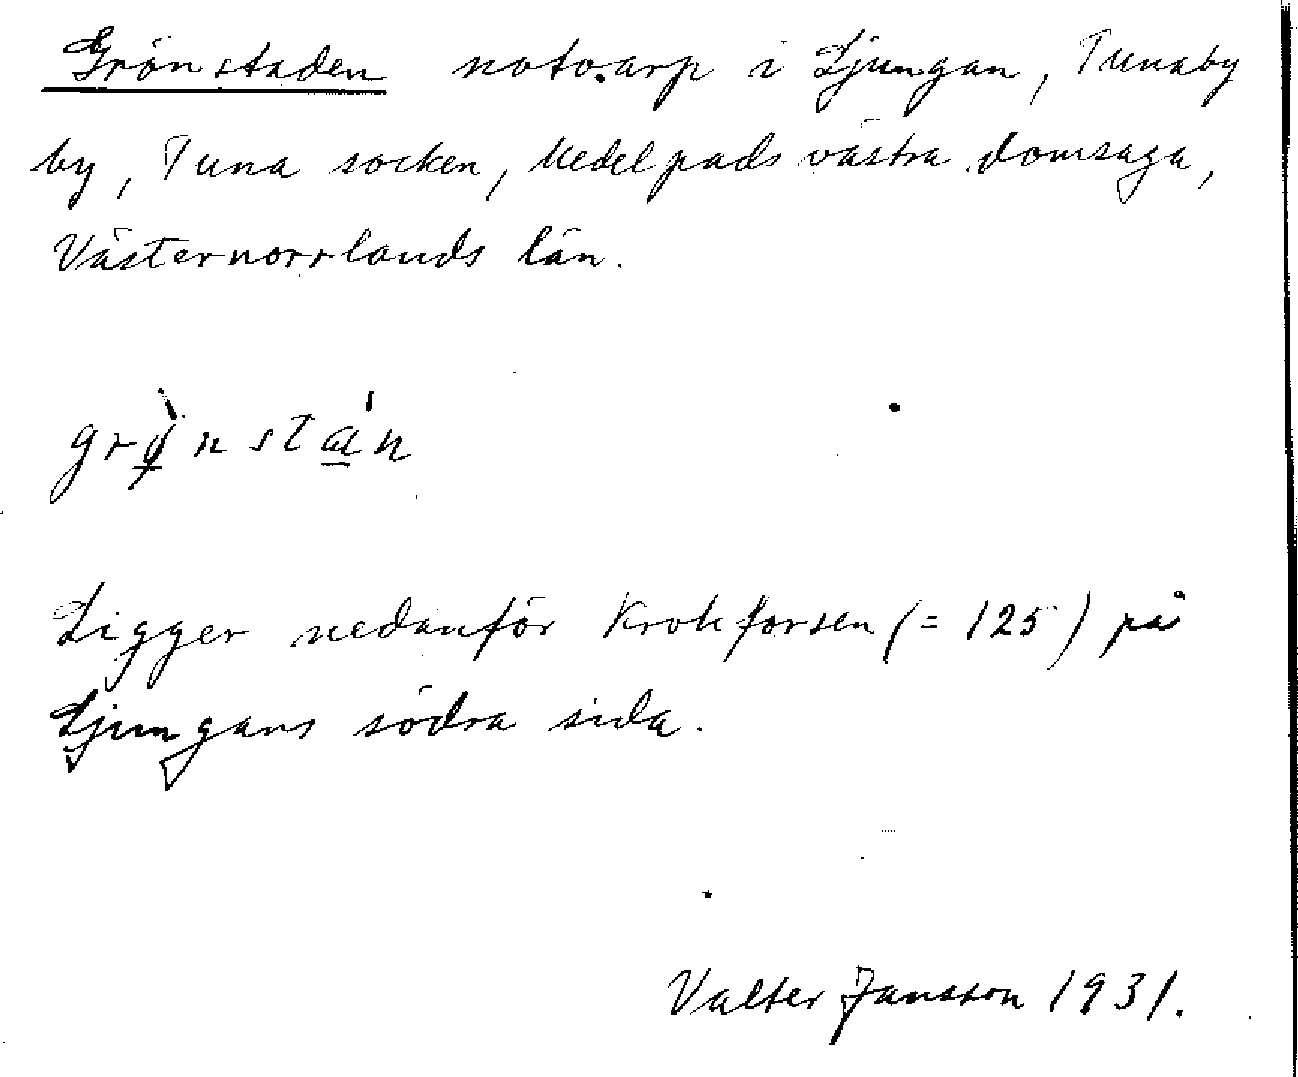 Grönstaden notvarp i Ljungan, Tunaby
by, Tuna socken, Medelpads västra domsaga,
Västernorrlands län.
grø̀nstán
Ligger nedanför Krokforsen (= 125) på
Ljungans södra sida.
Valter Jansson 1931.